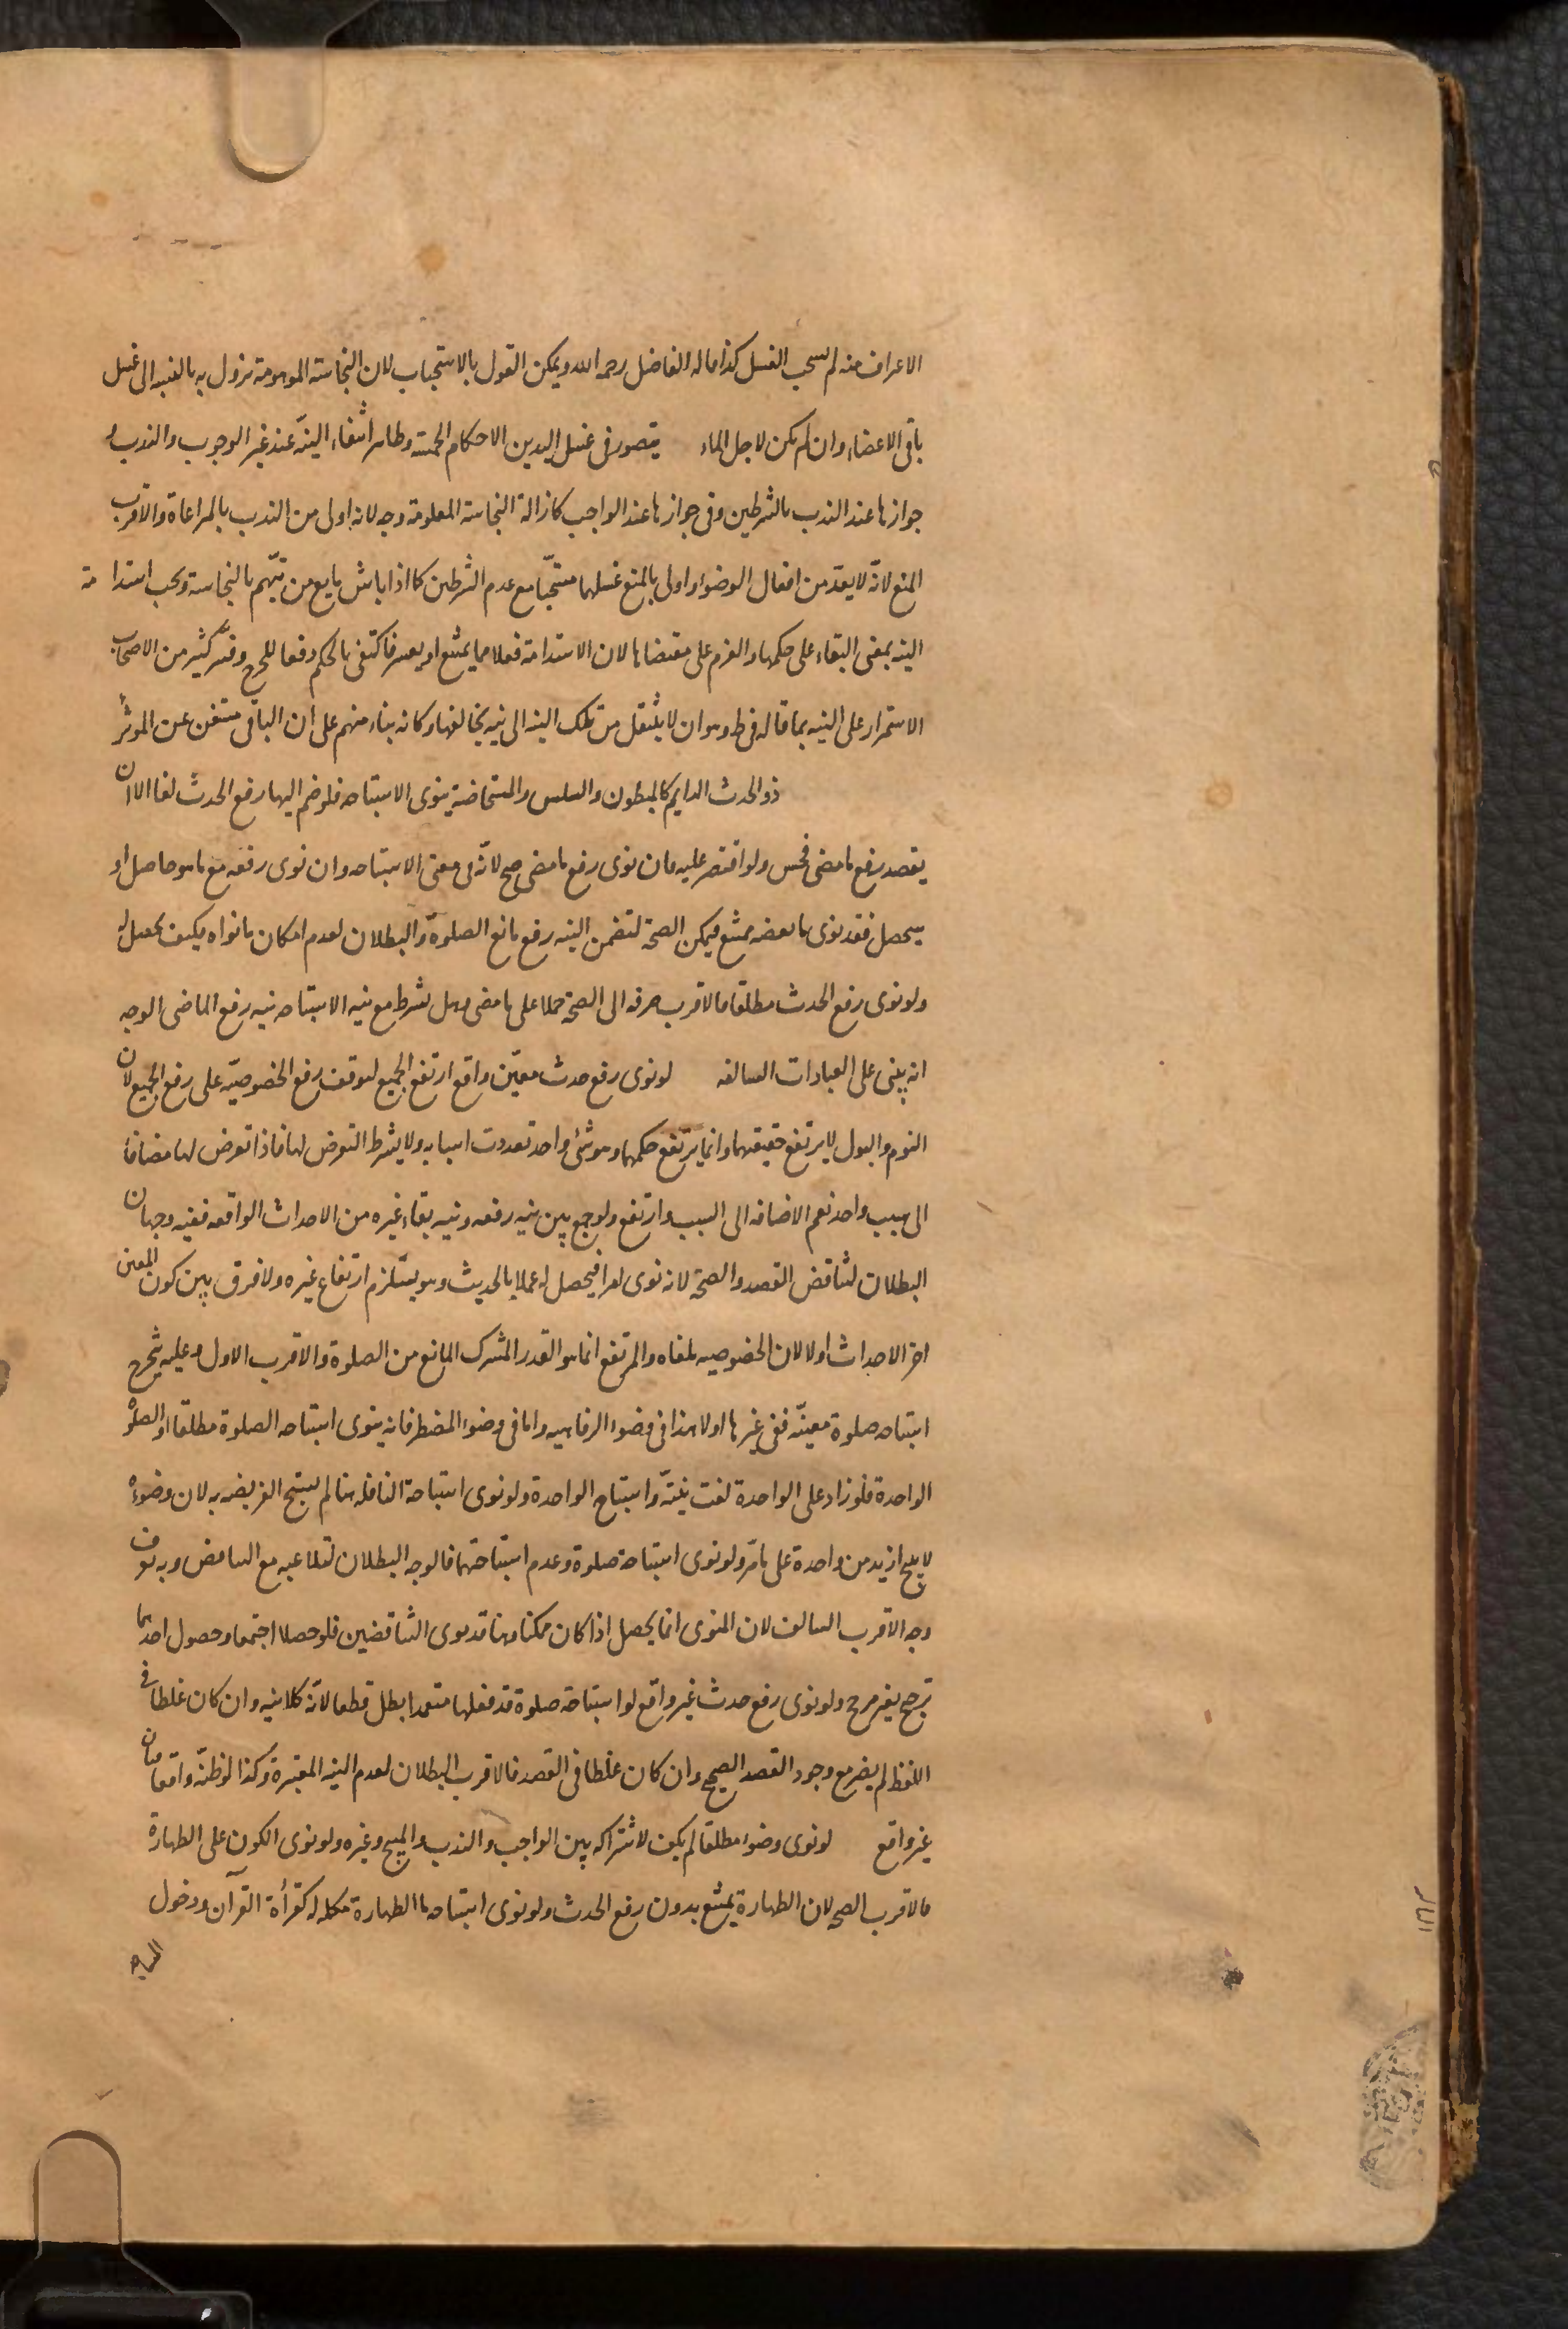 الاغراف منه لم يستحب الغسل كذا قاله الفاضل رحمه الله ويمكن القول بالاستحباب لان النجاسة الموهومة تزول به بالنسبه الى غسل
باقى الاعضاء وان لم يكن لاجل الماء يتصور فى غسل اليدين الاحكام الخمسة وظاهر انتفاء النيّة عند غير الوجوب والندب و
جوازها عند الندب بالشرطين وفى جوازها عند الواجب كازالة النجاسة المعلومة وجه لانه اولى من الندب بالمراعاة والاقرب
المنع لانّه لا يعدّ من افعال الوضوء واولى بالمنع غسلهما مستحبّا مع عدم الشرطين كما اذا باشر مايع من يتّهم بالنجاسة ويجب استدامة
النيه بمعنى البقاء على حكمها والعزم على مقتضاها لان الاستدامة فعلا مما يمتنع او يعسر فاكتفى بالحكم دفعا للحرج وفسّر كثير من الاصحاب
الاستمرار على النيه بما قاله فى ط وهو ان لا ينتقل من تلك النيه الى نيه يخالفها وكانه بناء منهم على ان الباقى مستغن عن الموثر
ذو الحدث الدايم كالمبطون والسلس والمستحاضة ينوى الاستباحه فلو ضم اليها رفع الحدث لغا الا ان
يقصد رفع ما مضى فحسن ولو اقتصر عليه فان نوى رفع ما مضى صح لانّه فى معنى الاستباحه وان نوى رفعه مع ما هو حاصل او
سيحصل فقد نوى ما بعضه ممتنع فيمكن الصحة لتضمن النيه رفع مانع الصلوة والبطلان لعدم امكان ما نواه فكيف يحصل له
ولو نوى رفع الحدث مطلقا فالاقرب صرفه الى الصحة حملا على ما مضى وهل يشرط مع نيه الاستباحه نيه رفع الماضى الوجه
انه يبنى على العبادات السالفه لو نوى رفع حدث معيّن واقع ارتفع الجميع لتوقف رفع الخصوصيّه على رفع الجميع لان
النوم والبول لا يرتفع حقيقتهما وانما يرتفع حكمهما وهو شئ واحد تعددت اسبابه ولا يشرط التعرض لها فاذا تعرض لها مضافا
الى سبب واحد لغت الاضافه الى السبب وارتفع ولو جمع بين نيه رفعه ونيه بقاء غيره من الاحداث الواقعه ففيه وجهان
البطلان لتناقض القصد والصحة لانه نوى امرا فيحصل له عملا بالحديث وهو يستلزم ارتفاع غيره ولا فرق بين كون المعين
اخر الاحداث اولا لان الخصوصيه ملغاه والمرتفع انما هو القدر المشترك المانع من الصلوة والاقرب الاول وعليه يتخرج
استباحه صلوة معينّه فنفى غيرها اولا هذا فى وضوء الرفاهيه واما فى وضوء المضطر فانه ينوى استباحه الصلوة مطلقا او الصلوة
الواحدة فلو زاد على الواحدة لغت نيّته واستباح الواحدة ولو نوى استباحة النافله هنا لم يستبح الفريضه به لان وضوءه
لا يبيح ازيد من واحدة على ما مرّ ولو نوى استباحة صلوة وعدم استباحتها فالوجه البطلان لتلاعبه مع التناقض وبه يعرف
وجه الاقرب السالف لان المنوى انما يحصل اذا كان ممكنا وهنا قد نوى المتناقضين فلو حصلا اجتمعا وحصول احدهما
ترجيح بغير مرجح ولو نوى رفع حدث غير واقع او استباحة صلوة قد فعلها متعمدا بطل قطعا لانّه كلا نيه وان كان غلطا فى
اللفظ لم يضر مع وجود القصد الصحيح وان كان غلطا فى القصد فالاقرب البطلان لعدم النيه المعتبرة وكذا لو ظنّه واقعا فبان
غير واقع لو نوى وضوء مطلقا لم يكف لاشتراكه بين الواجب والندب والمبيح وغيره ولو نوى الكون على الطهارة
فالاقرب الصحه لان الطهارة يمتنع بدون رفع الحدث ولو نوى استباحه ما الطهارة مكمله له كقرأة القرآن ودخول